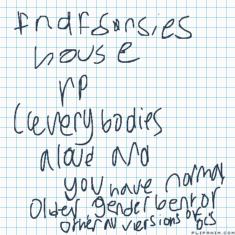 fndfsonsies
house
rp
(everybodies
aloud and
you have normal
Older genderbent or
other au versions of ocs
FLIPANIM.COM